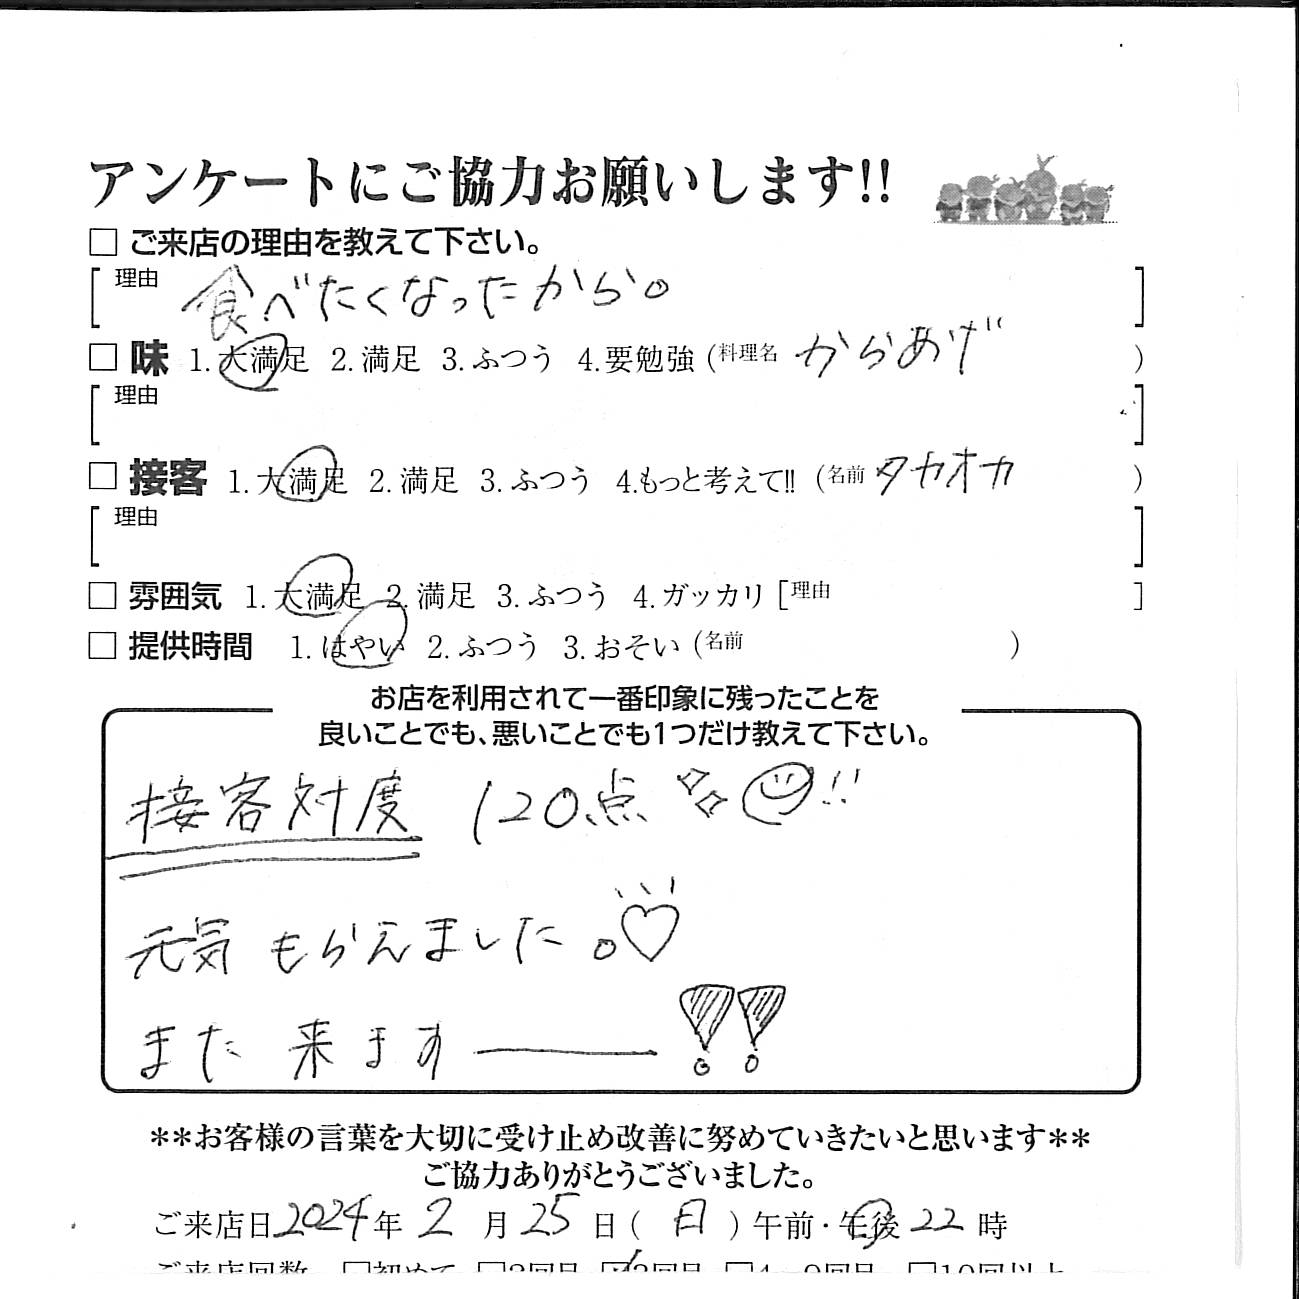 アンケートにご協力お願いします!!
□ ご来店の理由を教えて下さい。
[理由 食べたくなったから。]
□ 味 1.大満足 2.満足 3.ふつう 4.要勉強 (料理名 からあげ)
[理由 ]
□ 接客 1.大満足 2.満足 3.ふつう 4.もっと考えて!! (名前 タカオカ)
[理由 ]
□ 雰囲気 1.大満足 2.満足 3.ふつう 4.ガッカリ [理由 ]
□ 提供時間 1.はやい 2.ふつう 3.おそい (名前 )
お店を利用されて一番印象に残ったことを
良いことでも、悪いことでも1つだけ教えて下さい。
接客対度 120点 !!
元気もらえました。♡
また来ますー!!
**お客様の言葉を大切に受け止め改善に努めていきたいと思います**
ご協力ありがとうございました。
ご来店日 2024年 2月 25日 (日) 午前・午後 22時
ご来店回数 □初めて □2回目 □3回目 □4~9回目 □10回以上